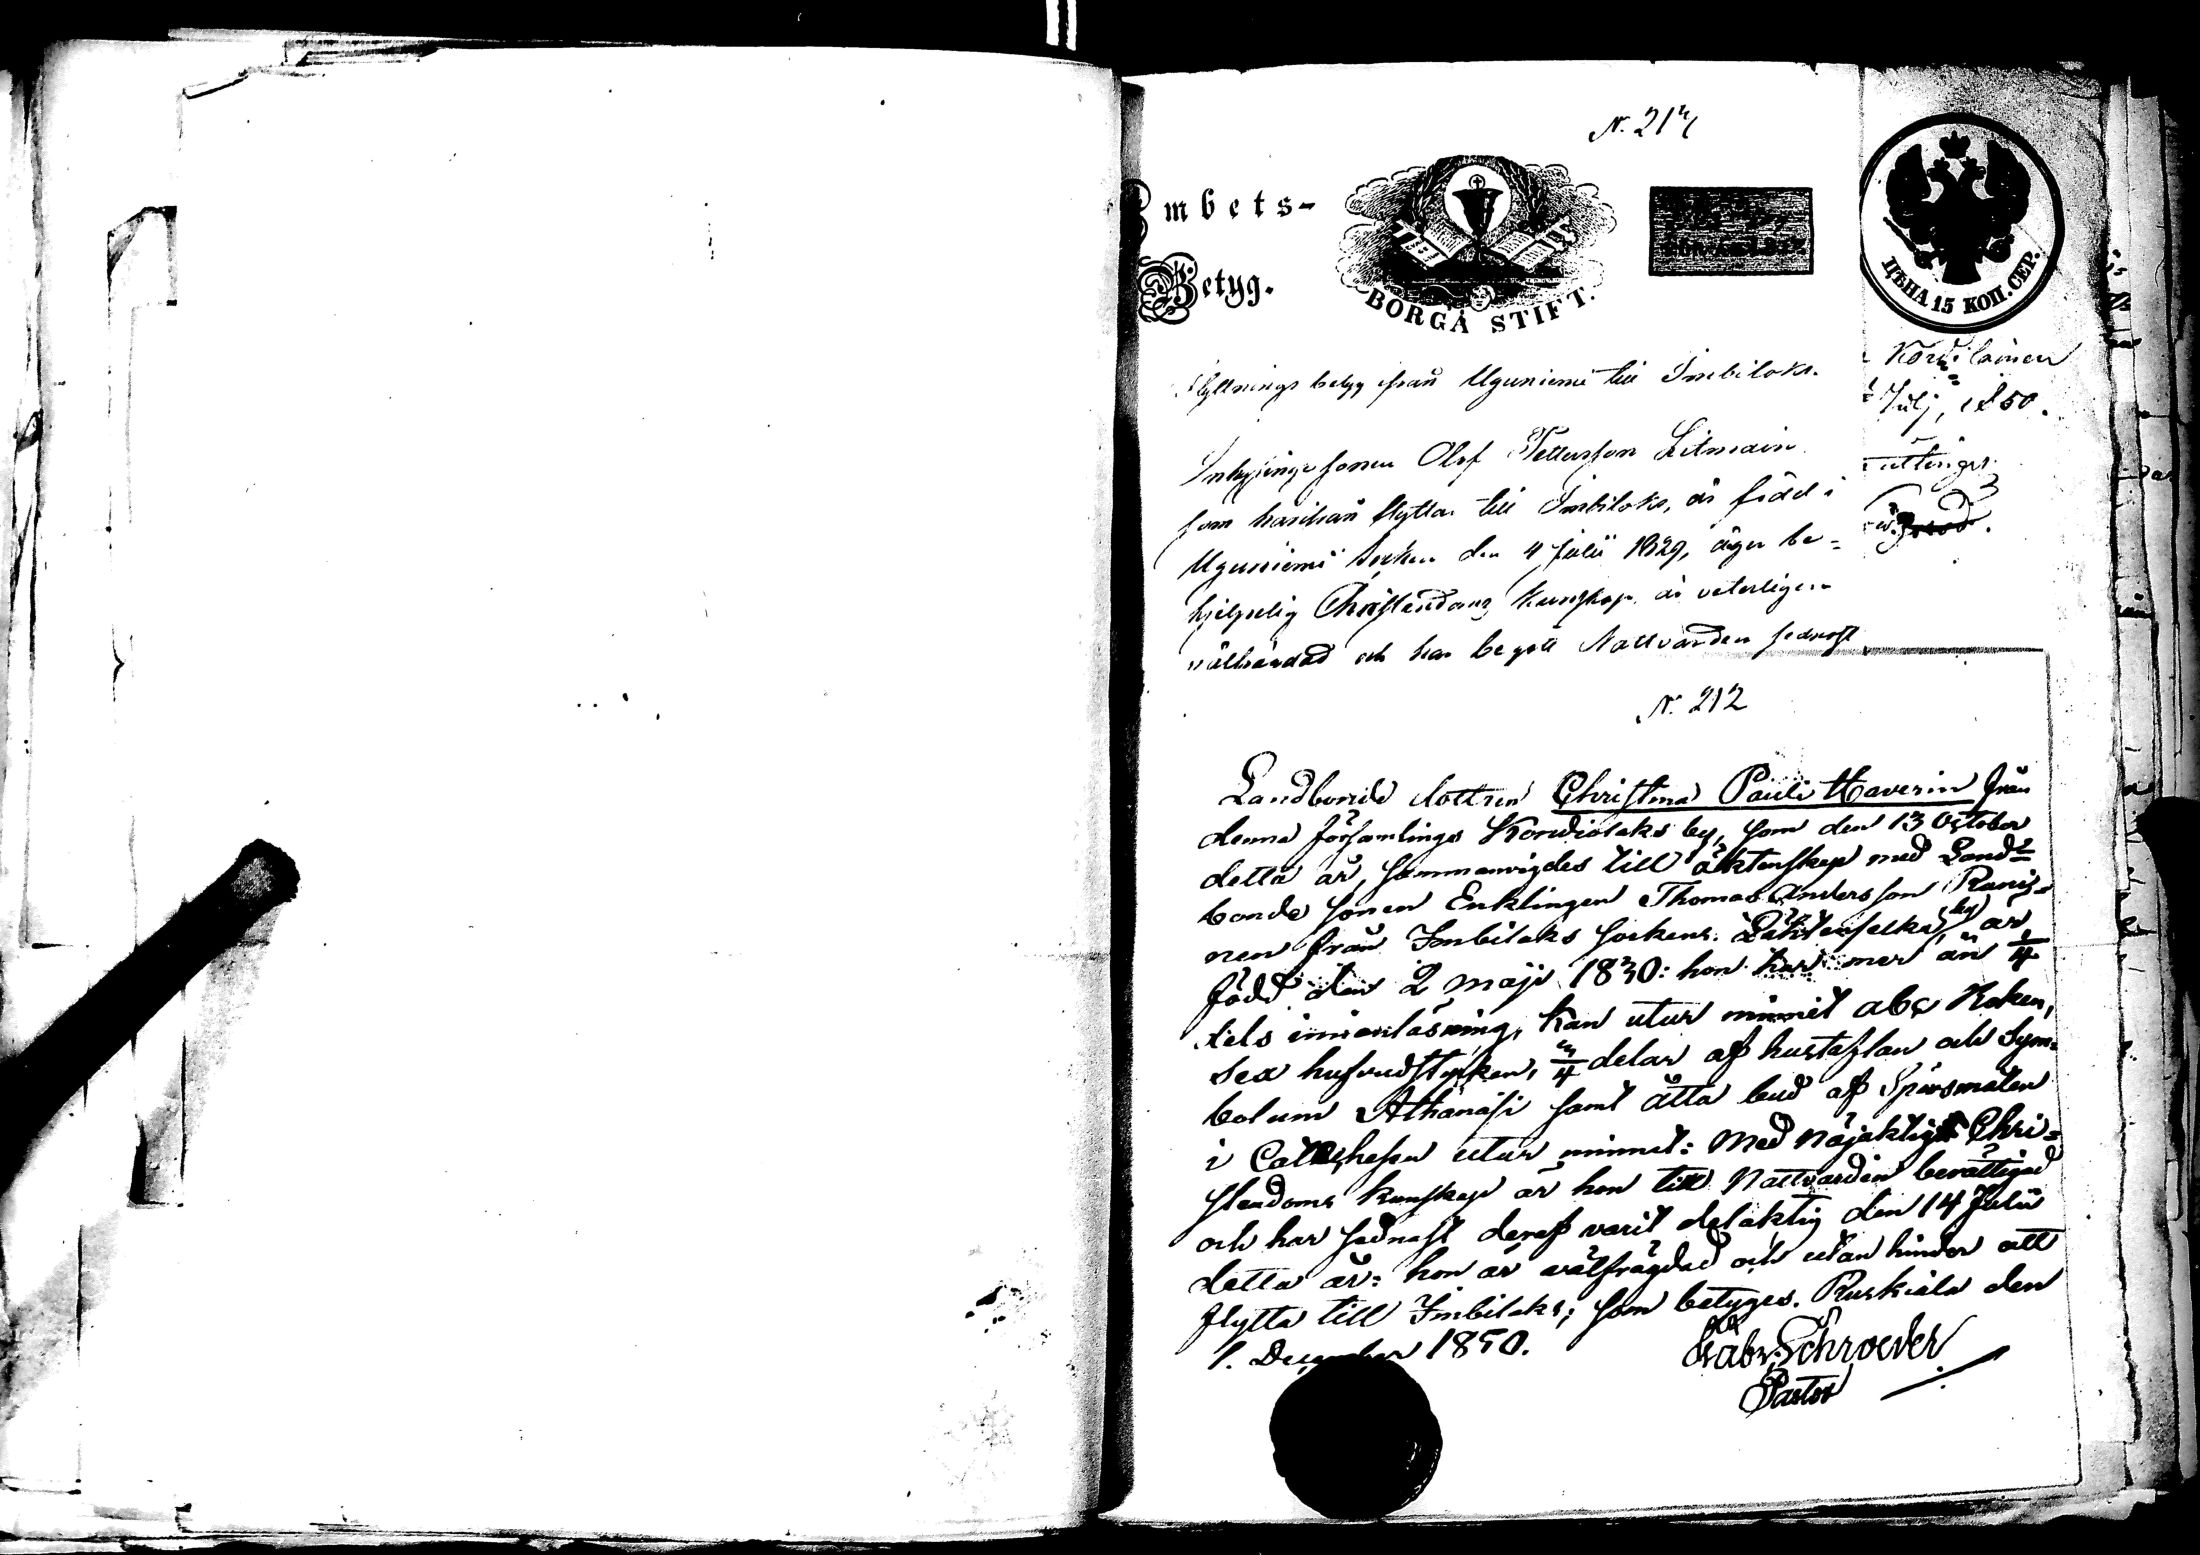 N. 217
Embets-
Betyg.
BORGÅ STIFT.
ЦѢНА 15 КОП. СЕР.
Flyttnings betyg ifrån Uguniemi till Imbiloks.
Julj, 1850.
Inhysinge sonen Olof Pettersson Litmain
som härifrån flyttar till Imbiloks, är född i
Uguniemi socken den 4 Julii 1829, äger be-
hjelpelig Christendoms kunskap, är veterligen
välfrägdad och har begått Nattvarden sednast
N. 212
Landbonde dottren Christina Pauli Haverin från
denna församlings Kondiolaks by, som den 13 October
detta år, sammanvigdes till äktenskap med Land-
bonde sonen Enklingen Thomas Andersson
nen från Imbilaks sockens by är
född den 2 Maji 1830: hon har mer än 1/4
dels innanläsning, kan utur minnet abc Boken,
sex hufvudstycken, 3/4 delar af hustaflan och Sym-
bolum Athanasi samt åtta bud af Spörsmålen
i Catechesen utur minnet: Med nöjaktig Chri-
stendoms kunskap är hon till Nattvarden berättigad
och har sednast deraf varit delaktig den 14 Julii
detta år: hon är välfrägdad och utan hinder att
flytta till Imbilaks; som betyges. Ruskiala den
1. December 1850.
Gabr. Schroeder
Pastor